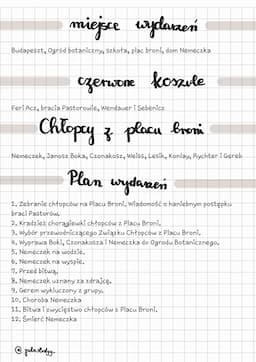 miejsce wydarzeń
Budapeszt, Ogród botaniczny, szkoła, plac broni, dom Nemeczka
czerwone koszule
Feri Acz, bracia Pastorowie, Wendauer i Sebenicz
Chłopcy z placu broni
Nemeczek, Janosz Boka, Czonakosz, Weiss, Lesik, Kolnay, Rychter i Gereb
Plan wydarzeń
1. Zebranie chłopców na Placu Broni. Wiadomość o haniebnym postępku
braci Pastorów.
2. Kradzież chorągiewki chłopców z Placu Broni.
3. Wybór przewodniczącego Związku Chłopców z Placu Broni.
4. Wyprawa Boki, Czonakosza i Nemeczka do Ogrodu Botanicznego.
5. Nemeczek na wodzie.
6. Nemeczek na wyspie.
7. Przed bitwą.
8. Nemeczek uznany za zdrajcę.
9. Gerem wykluczony z grupy.
10. Choroba Nemeczka
11. Bitwa i zwycięstwo chłopców z Placu Broni.
12. Śmierć Nemeczka